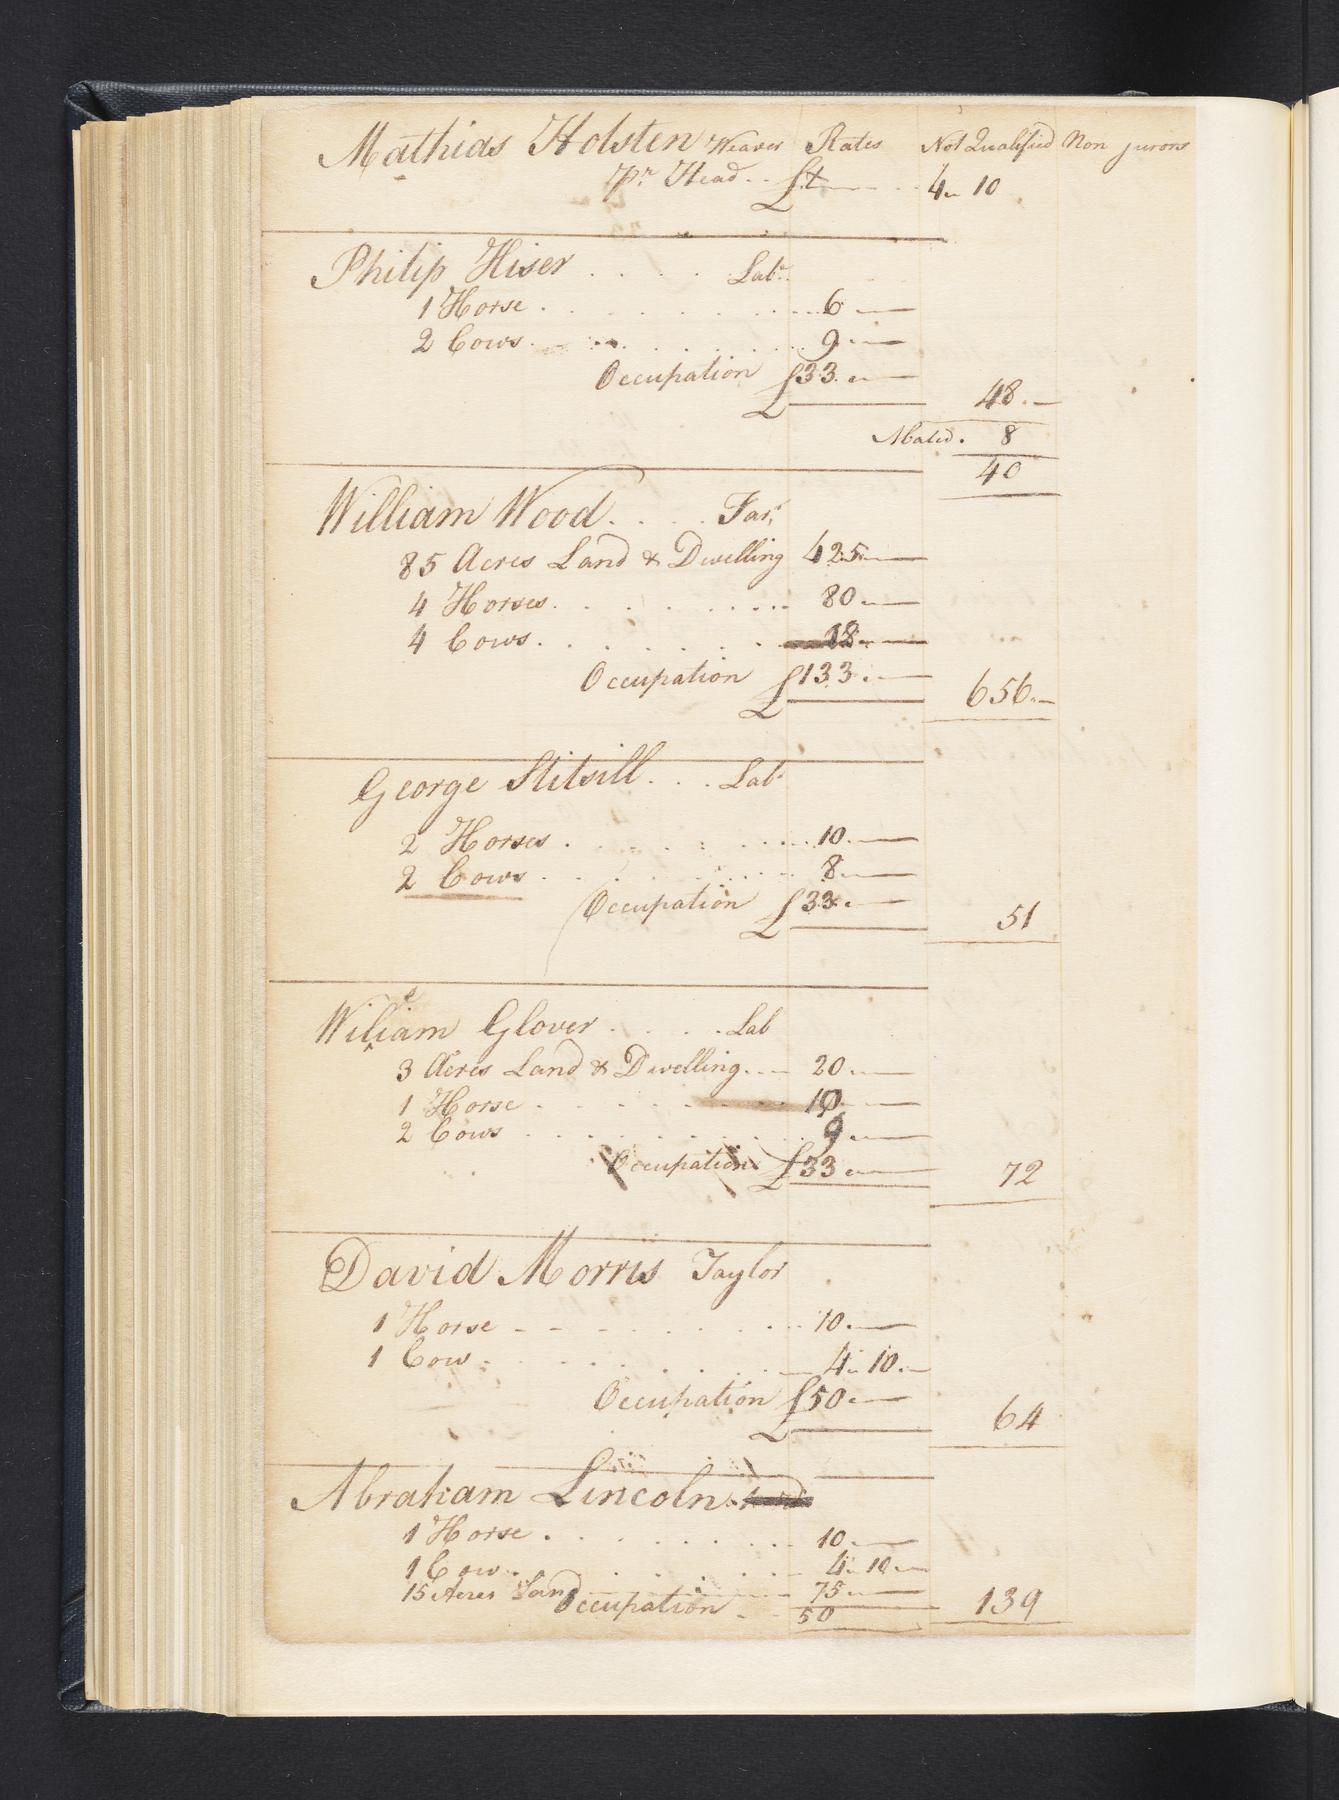 Mathias Holsten Weaver Rates Not Qualified Non jurors
Pr. Head £ 4 10
Philip Hiser Labr.
1 Horse 6
2 Cows 9
Occupation £33
48
Abated. 8
40
William Wood Far.
85 Acres Land & Dwelling 425
4 Horses 80
4 Cows 18
Occupation £133
656
George Stitsill Labr
2 Horses 10
2 Cows 8
Occupation £33
51
William Glover Lab
3 Acres Land & Dwelling 20
1 Horse 10
2 Cows 9
Occupation £33
72
David Morris Taylor
1 Horse 10
1 Cow 4 10
Occupation £50
64
Abraham Lincoln
1 Horse 10
1 Cow 4 10
15 Acres Land 75
Occupation 50
139